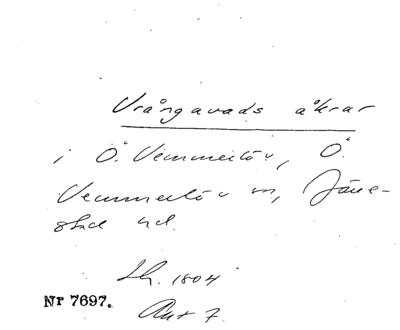 Vrångavads åkrar
i Ö. Vemmerlöv, Ö.
Vemmerlöv sn, Järre-
stad hd.
Lh. 1804
Akt 7.
Nr 7697.